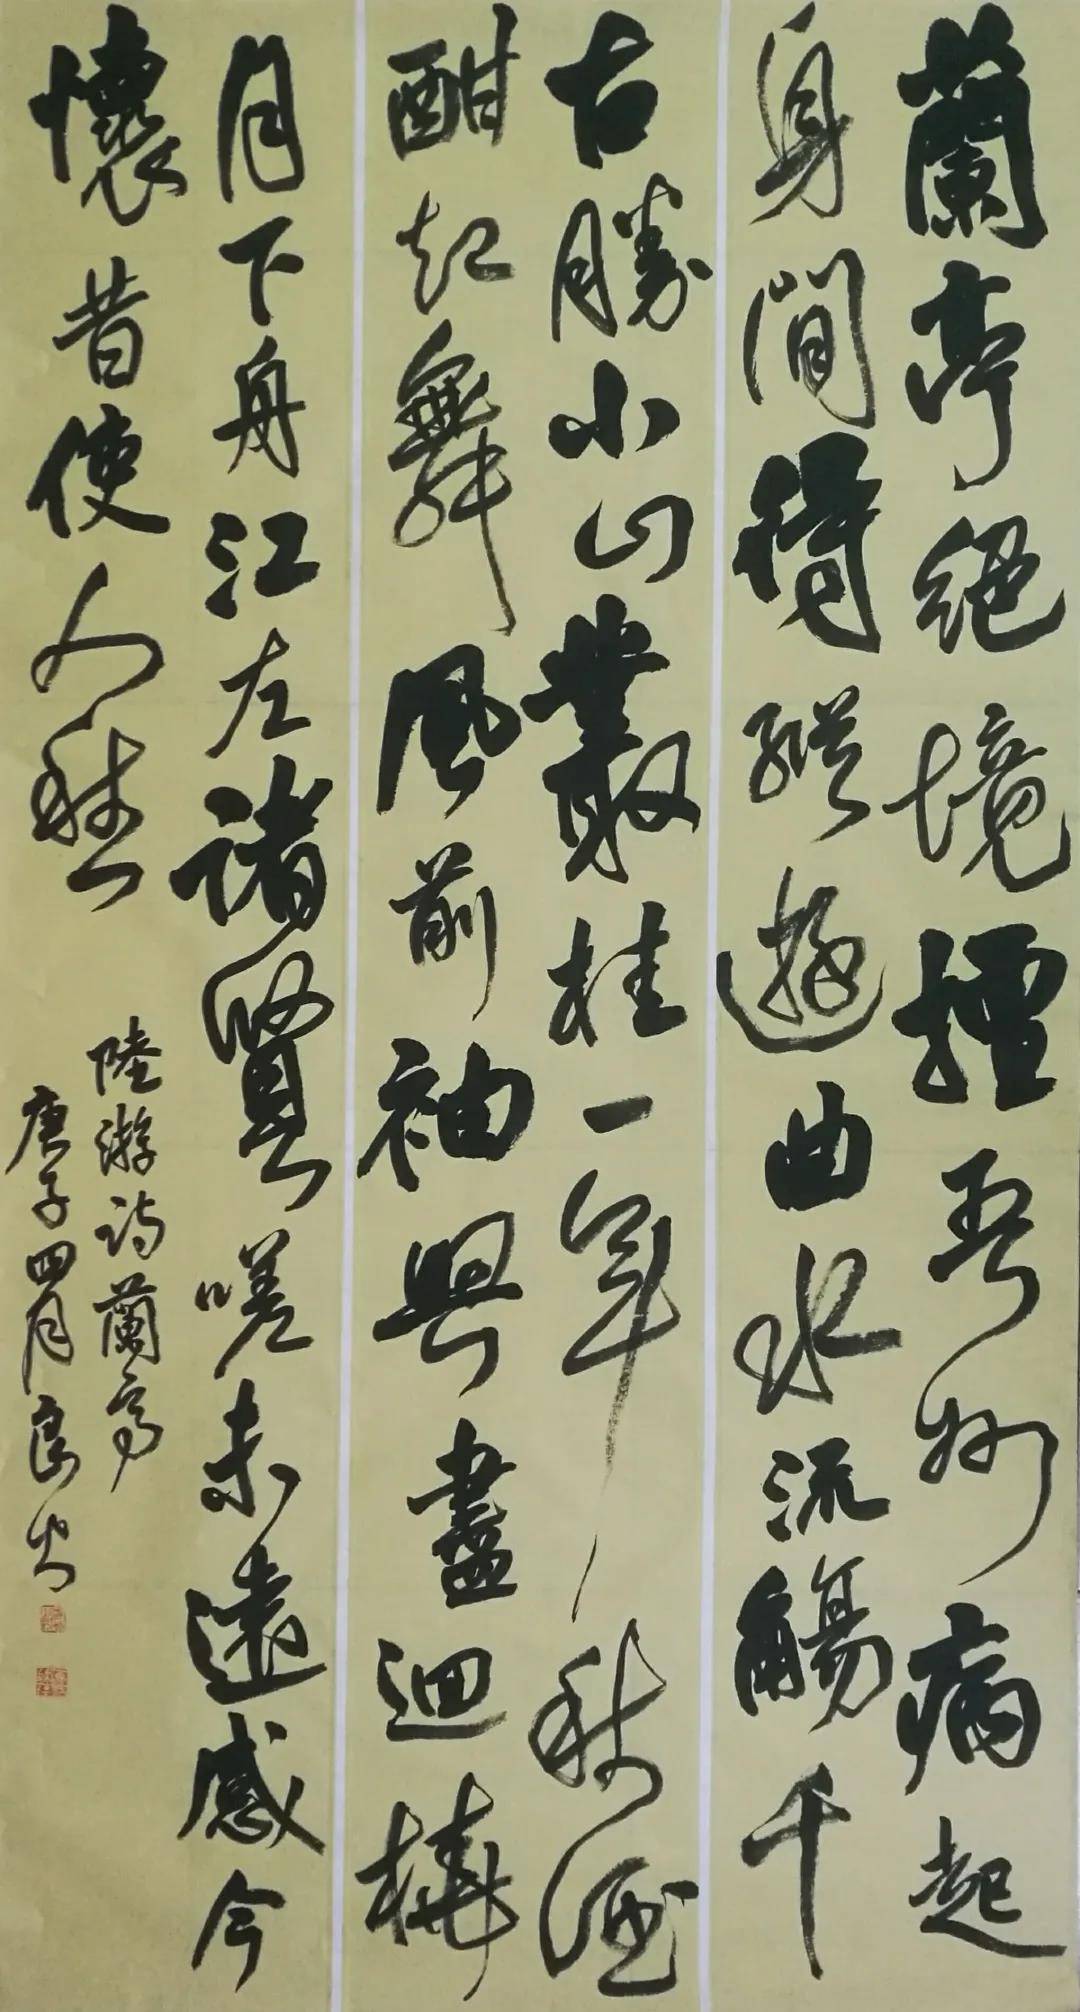 蘭亭絕境擅吾州病起
身閒得縱遊曲水流觴千
古勝小山叢桂一年秋酒
酣起舞風前袖興盡迴橈
月下舟江左諸賢嗟未遠感今
懷昔使人愁
陸游詩蘭亭
庚子四月良